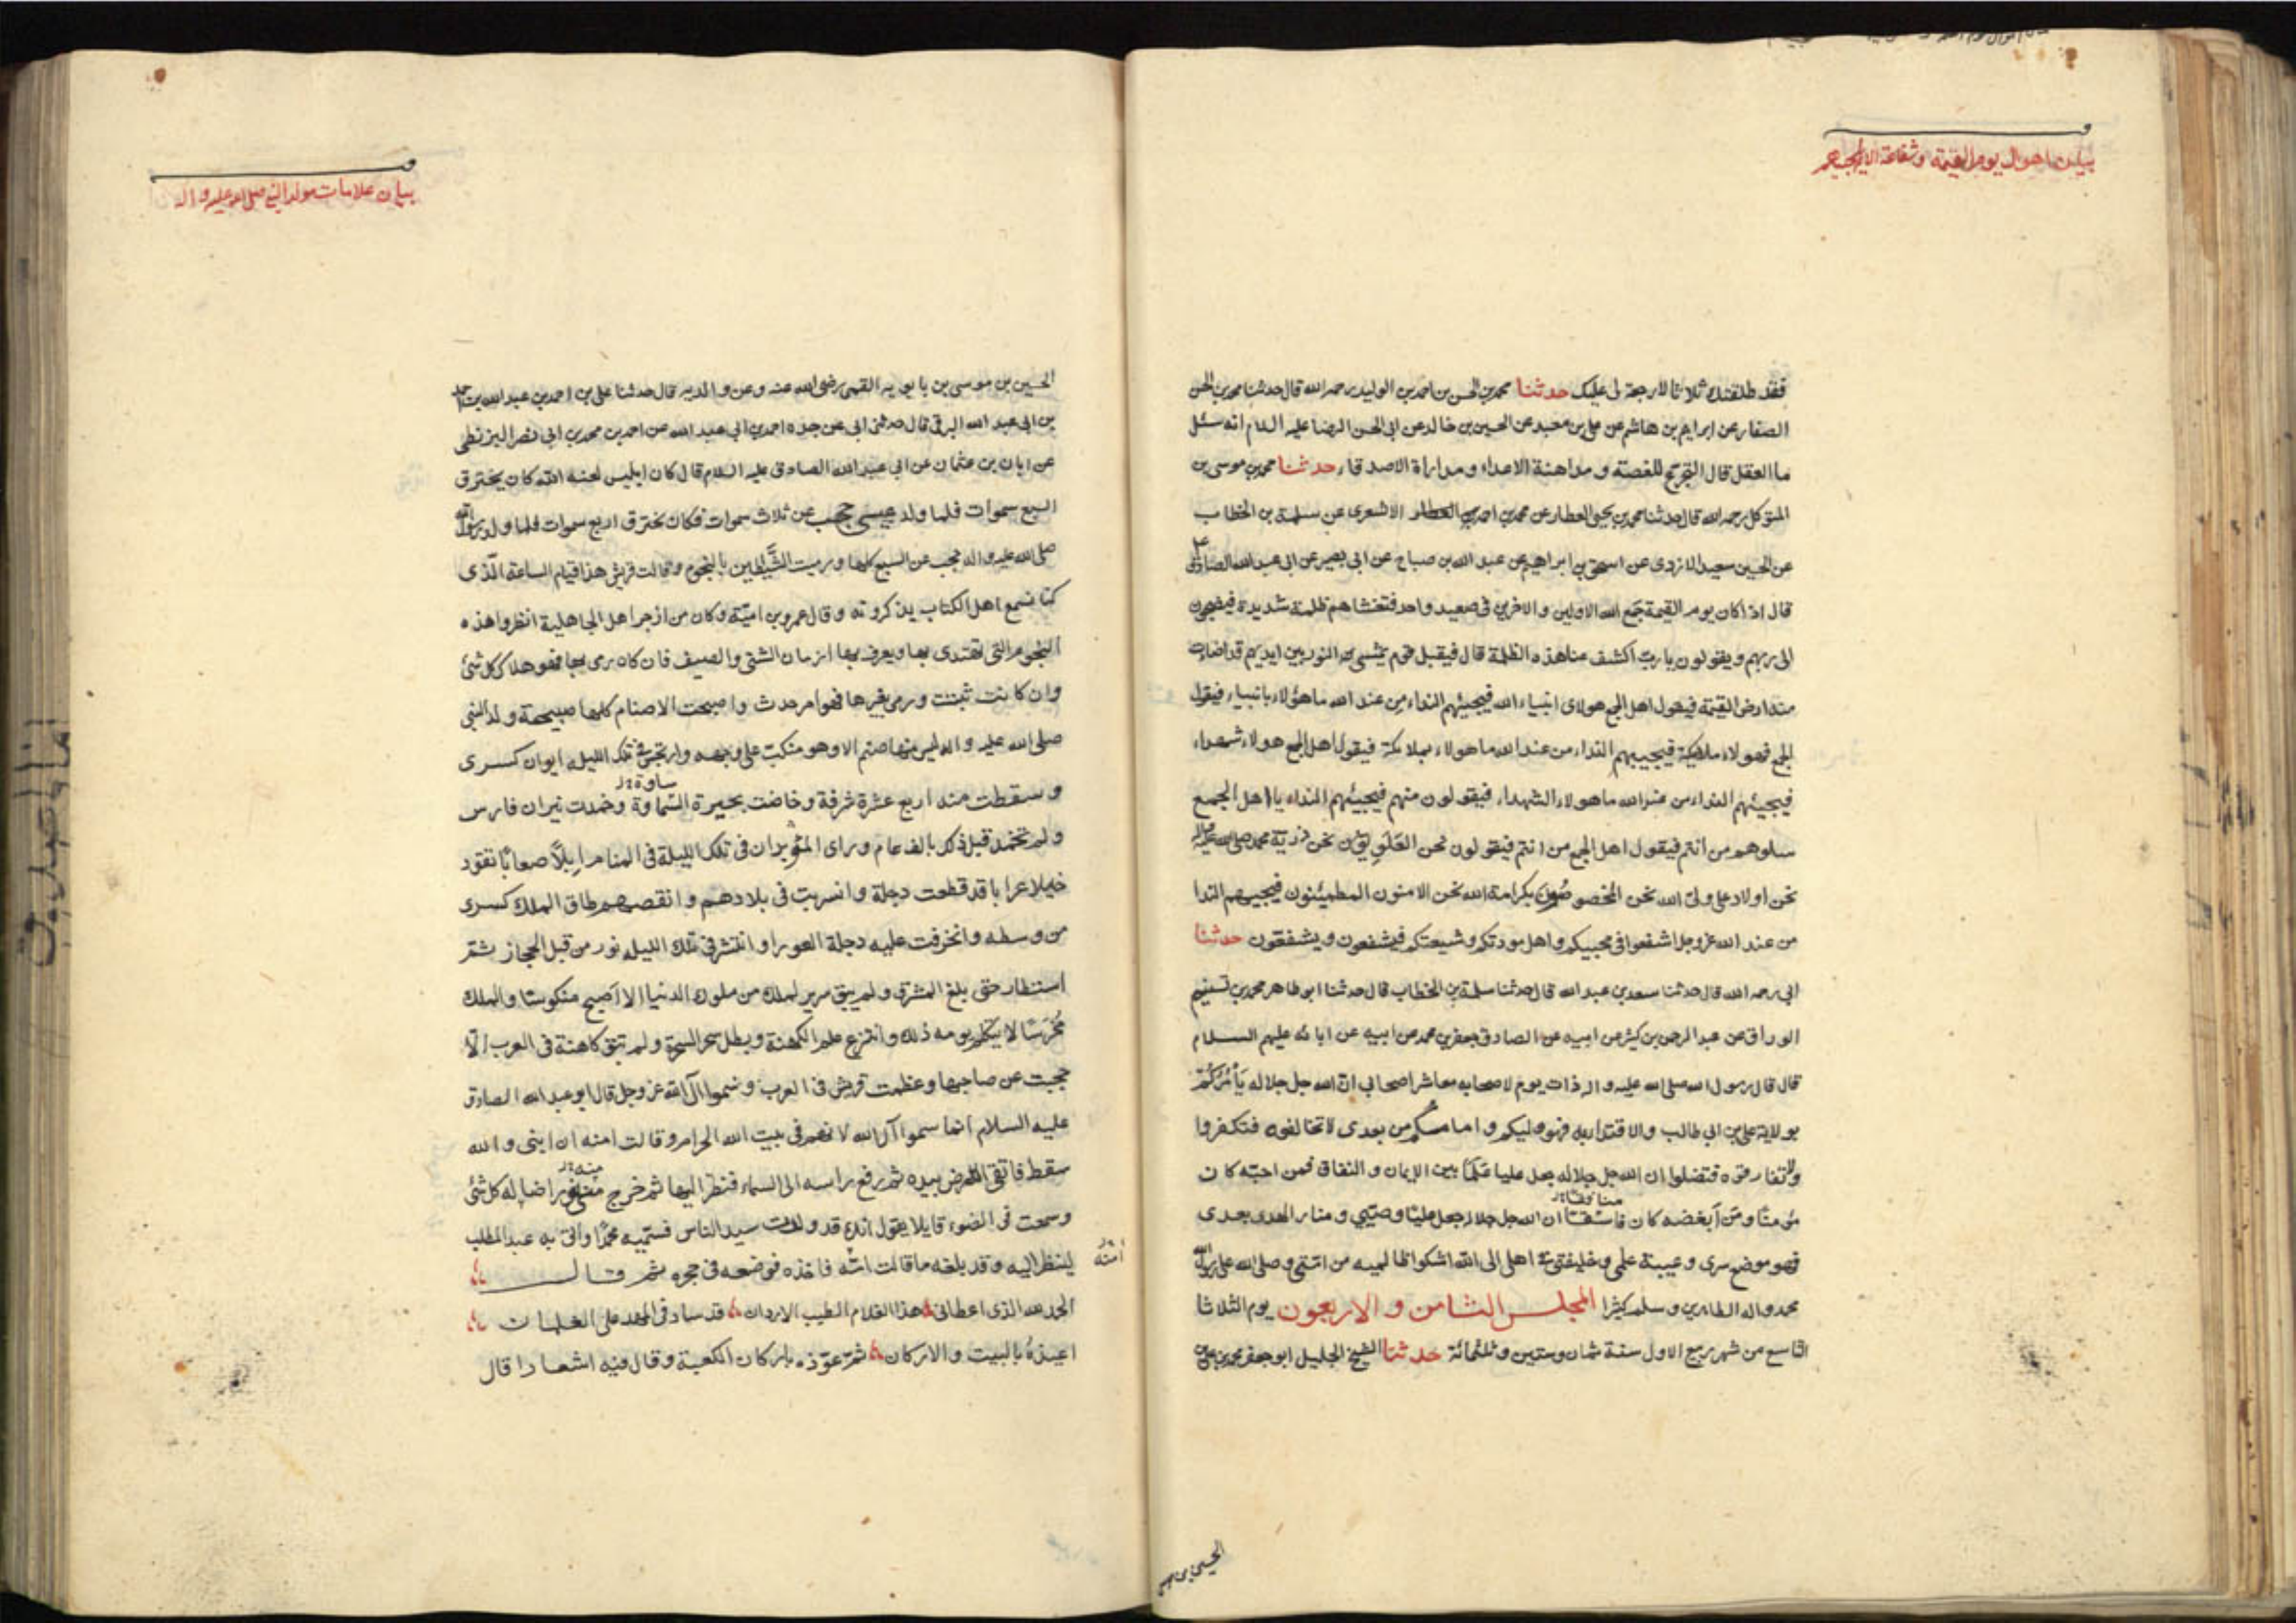 بيان اهوال يوم القيمة وشفاعة
فقد طلقتك ثلاثا لا رجعة لى عليك حدثنا محمد بن الحسن بن احمد بن الوليد رحمه الله قال حدثنا محمد بن الحسن
الصفار عن ابراهيم بن هاشم عن على بن معبد عن الحسين بن خالد عن ابى الحسن الرضا عليه السلام انه سئل
ما العقل قال التجرع للغصة و مداهنة الاعداء و مداراة الاصدقاء حدثنا محمد بن موسى بن
المتوكل رحمه الله قال حدثنا محمد بن يحيى العطار عن محمد بن احمد الاشعرى عن سلمة بن الخطاب
عن الحسين سعيد الازدى عن اسحق بن ابراهيم عن عبد الله بن صباح عن ابى بصير عن ابى عبد الله الصادق ع
قال اذا كان يوم القيمة جمع الله الاولين والاخرين فى صعيد واحد فتغشاهم ظلمة شديدة فيضجون
الى ربهم ويقولون يا رب اكشف عنا هذه الظلمة قال فيقبل قوم يمشى النور بين ايديهم قد اضاء
ارض القيمة فيقول اهل الجمع هولاى انبياء الله فيجيئهم النداء من عند الله ما هؤلاء بانبياء فيقول
الجمع فهولاء ملائكة فيجيبهم النداء من عند الله ما هولاء بملائكة فيقول اهل الجمع هولاء شهداء
فيجيئهم النداء من عند الله ما هولاء الشهداء فيقولون منهم فيجيئهم النداء يا اهل الجمع
سلوهم من انتم فيقول اهل الجمع من انتم فيقولون نحن العلويون نحن ذرية محمد صلى الله عليه واله
نحن اولاد على ولى الله نحن المخصوصون بكرامة الله نحن الامنون المطمئنون فيجيبهم الندا
من عند الله عز وجل اشفعوا فى محبيكم واهل مودتكم وشيعتكم فيشفعون ويشفعون حدثنا
ابى رحمه الله قال حدثنا سعد بن عبد الله قال حدثنا سلمة بن الخطاب قال حدثنا ابو طاهر محمد بن تسنيم
الوراق عن عبد الرحمن بن كثير عن ابيه عن الصادق جعفر بن محمد عن ابيه عن ابائه عليهم السلام
قال قال رسول الله صلى الله عليه واله ذات يوم لاصحابه معاشر اصحابى ان الله جل جلاله يأمركم
بولاية على بن ابى طالب والاقتداء به فهو وليكم و امامكم من بعدى لا تخالفوه فتكفروا
ولا تفارقوه فتضلوا ان الله جل جلاله جعل عليا علما بين الايمان و النفاق فمن احبه كان
منافقا
مؤمنا ومن ابغضه كان فاسقا ان الله جل جلاله جعل عليا وصيى و منار الهدى بعدى
فهو موضع سرى و عيبة علمى وخليفتى فى اهلى الى الله اشكوا ظالميه من امتى وصلى الله على رسوله
محمد واله الطاهرين وسلم كثيرا المجلس الثامن و الاربعون يوم الثلاثا
التاسع من شهر ربيع الاول سنة ثمان وستين وثلثمائة حدثنا الشيخ الجليل ابو جعفر محمد بن على بن
الحسين بن
بيان علامات مولد النبى صلى الله عليه واله
الحسين بن موسى بن بابويه القمى رضى الله عنه وعن والديه قال حدثنا على بن احمد بن عبد الله بن احمد
بن ابى عبد الله البرقى قال حدثنى ابى عن جده احمد بن ابى عبد الله عن احمد بن محمد بن ابى نصر البزنطى
عن ابان بن عثمان عن ابى عبد الله الصادق عليه السلام قال كان ابليس لعنه الله كان يخترق
السبع سموات فلما ولد عيسى حجب عن ثلاث سموات فكان يخترق اربع سموات فلما ولد رسول الله
صلى الله عليه واله حجب عن السبع كلها ورميت الشياطين بالنجوم وقالت قريش هذا قيام الساعة الذى
كنا نسمع اهل الكتاب يذكرونه وقال عمرو بن امية وكان من ازجر اهل الجاهلية انظروا هذه
النجوم التى تهتدى بها ويعرف بها ازمان الشتى والصيف فان كان رمى بها فهو هلاك كل شئ
وان كانت ثبتت ورمى بغيرها فهو امر حدث واصبحت الاصنام كلها صبيحة ولد النبى
صلى الله عليه واله ليس منها صنم الا وهو منكب على وجهه وارتجس فى تلك الليلة ايوان كسرى
ساوة
وسقطت منه اربع عشرة شرفة وغاضت بحيرة السماوة وخمدت نيران فارس
ولم تخمد قبل ذلك بالف عام وراى المؤبدان فى تلك الليلة فى المنام ابلا صعابا تقود
خيلا عرابا قد قطعت دجلة وانسربت فى بلادهم وانقصم طاق الملك كسرى
من وسطه وانخرقت عليه دجلة العورا وانتشر فى تلك الليلة نور من قبل الحجاز ثم
استطار حتى بلغ المشرق ولم يبق سرير لملك من ملوك الدنيا الا اصبح منكوسا والملك
مخرسا لا يتكلم يومه ذلك وانتزع علم الكهنة وبطل سحر السحرة ولم تبق كاهنة فى العرب الا
حجبت عن صاحبها وعظمت قريش فى العرب وسموا آل الله عز وجل قال ابو عبد الله الصادق
عليه السلام انما سموا آل الله لانهم فى بيت الله الحرام وقالت امنه ان ابنى والله
سقط فاتقى الارض بيده ثم رفع راسه الى السماء فنظر اليها ثم خرج منه نور اضا له كل شئ
وسمعت فى الضوء قايلا يقول انك قد ولدت سيد الناس فسميه محمدا واتى به عبد المطلب
لينظر اليه وقد بلغه ما قالت امه فاخذه فوضعه فى حجره ثم قال
الحمد لله الذى اعطانى هذا الغلام الطيب الاردان قد ساد فى المهد على الغلمان
اعيذه بالبيت والاركان ثم عوذه باركان الكعبة وقال فيه اشعارا قال